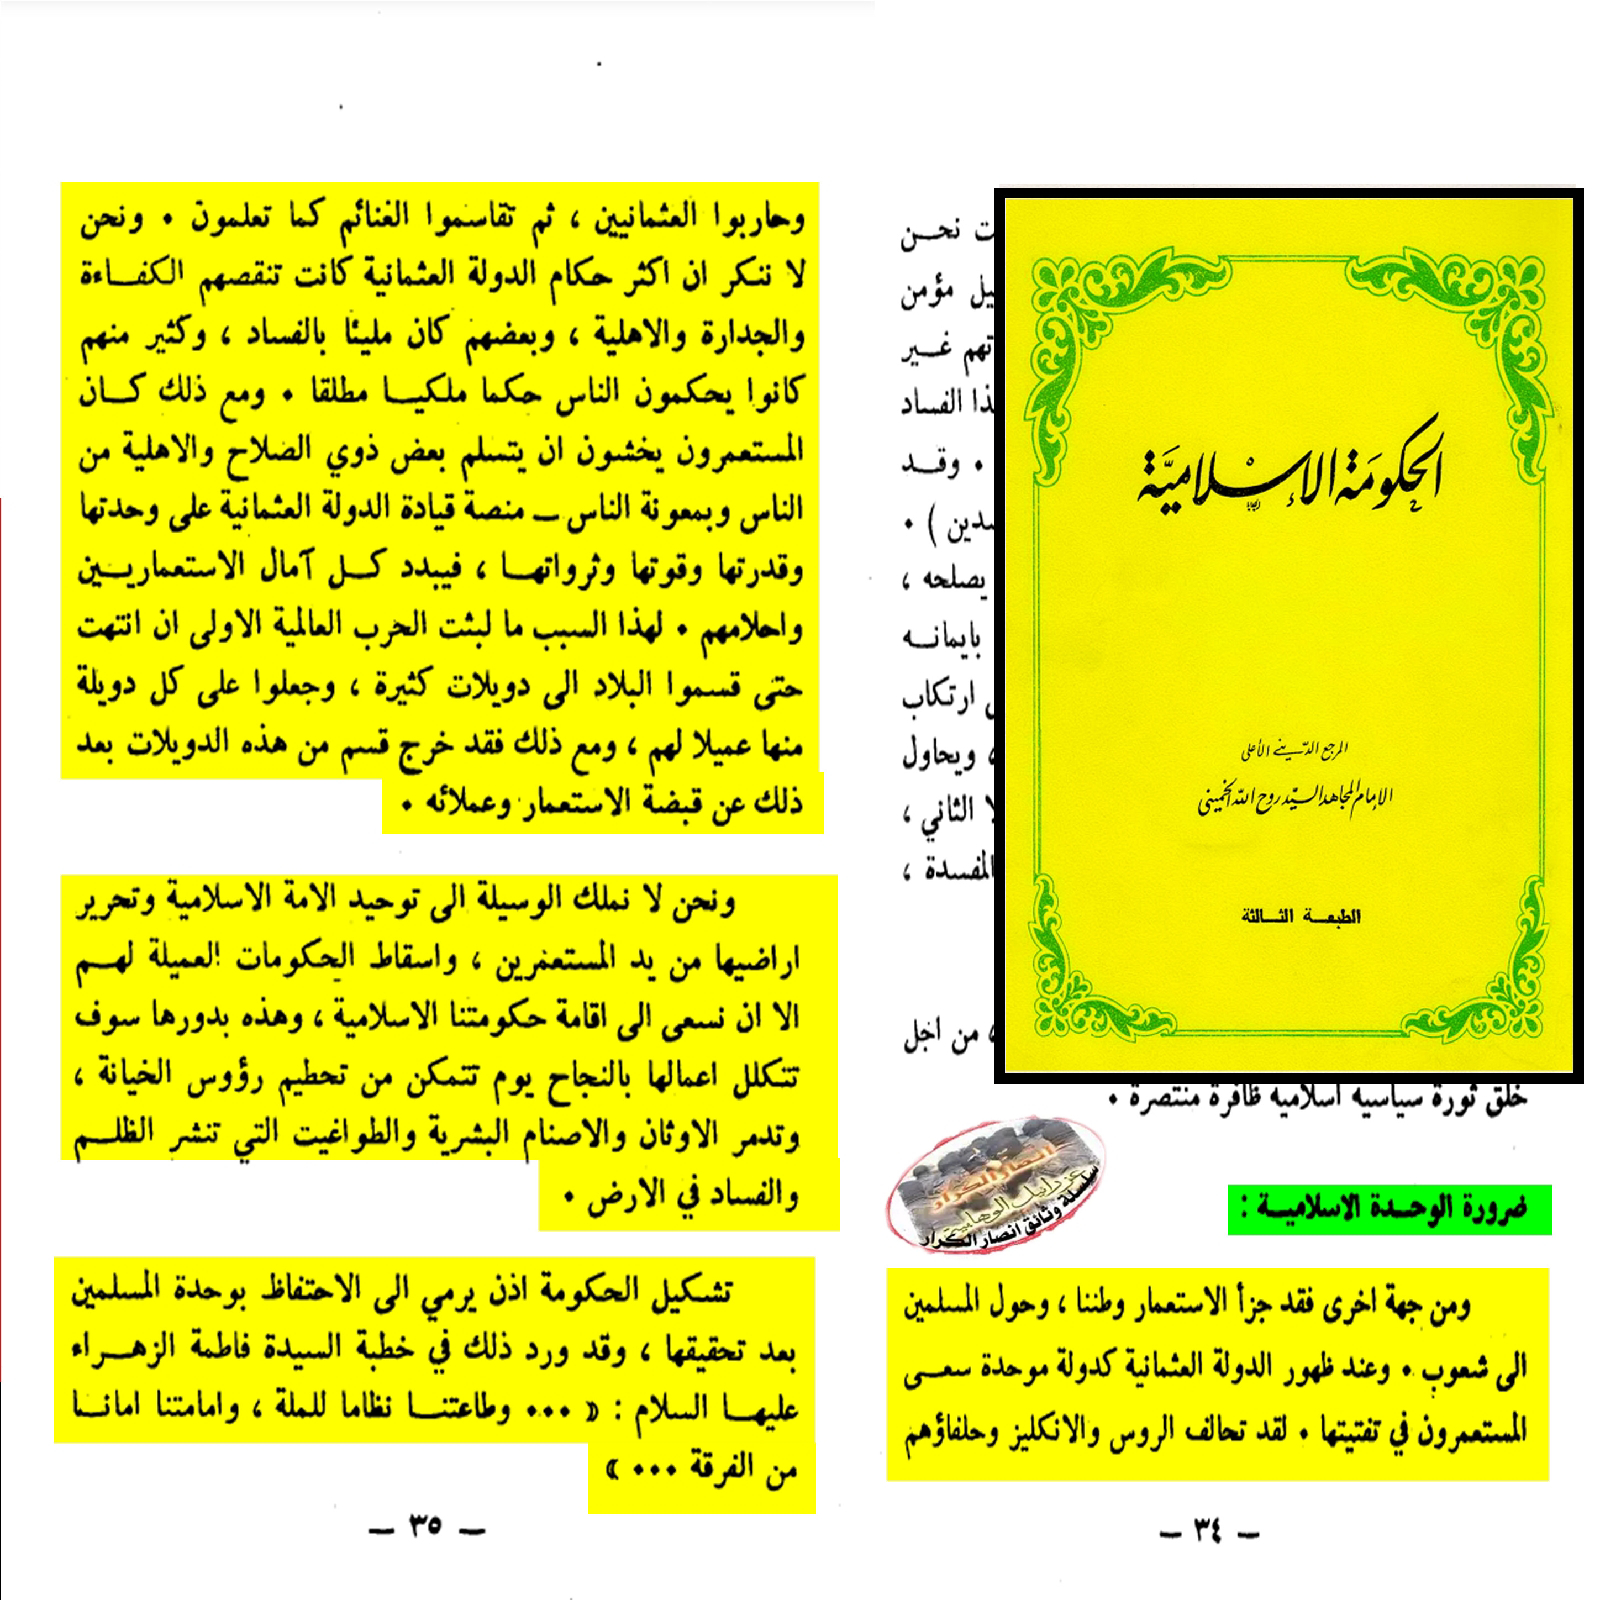 ت نحن
يل مؤمن
تهم غير
ذا الفساد
• وقد
سدين ) •
يصلحه ،
بايمانه
ارتكاب
، ويحاول
لا الثاني ،
المفسدة ،
، من اجل
خلق ثورة سياسيه اسلاميه ظافرة منتصرة •
ضرورة الوحدة الاسلامية :
ومن جهة اخرى فقد جزأ الاستعمار وطننا ، وحول المسلمين
الى شعوب • وعند ظهور الدولة العثمانية كدولة موحدة سعى
المستعمرون في تفتيتها • لقد تحالف الروس والانكليز وحلفاؤهم
— ٣٤ —
الحكومة الإسلامية
المرجع الديني الأعلى
الإمام المجاهد السيد روح الله الخميني
الطبعة الثالثة
انصار الكرار
سلسلة وثائق انصار الكرار
وحاربوا العثمانيين ، ثم تقاسموا الغنائم كما تعلمون • ونحن
لا ننكر ان اكثر حكام الدولة العثمانية كانت تنقصهم الكفاءة
والجدارة والاهلية ، وبعضهم كان مليئا بالفساد ، وكثير منهم
كانوا يحكمون الناس حكما ملكيا مطلقا • ومع ذلك كان
المستعمرون يخشون ان يتسلم بعض ذوي الصلاح والاهلية من
الناس وبمعونة الناس — منصة قيادة الدولة العثمانية على وحدتها
وقدرتها وقوتها وثرواتها ، فيبدد كل آمال الاستعماريين
واحلامهم • لهذا السبب ما لبثت الحرب العالمية الاولى ان انتهت
حتى قسموا البلاد الى دويلات كثيرة ، وجعلوا على كل دويلة
منها عميلا لهم ، ومع ذلك فقد خرج قسم من هذه الدويلات بعد
ذلك عن قبضة الاستعمار وعملائه •
ونحن لا نملك الوسيلة الى توحيد الامة الاسلامية وتحرير
اراضيها من يد المستعمرين ، واسقاط الحكومات العميلة لهم
الا ان نسعى الى اقامة حكومتنا الاسلامية ، وهذه بدورها سوف
تتكلل اعمالها بالنجاح يوم تتمكن من تحطيم رؤوس الخيانة ،
وتدمر الاوثان والاصنام البشرية والطواغيت التي تنشر الظلم
والفساد في الارض •
تشكيل الحكومة اذن يرمي الى الاحتفاظ بوحدة المسلمين
بعد تحقيقها ، وقد ورد ذلك في خطبة السيدة فاطمة الزهراء
عليها السلام : « ••• وطاعتنا نظاما للملة ، وامامتنا امانا
من الفرقة ••• »
— ٣٥ —